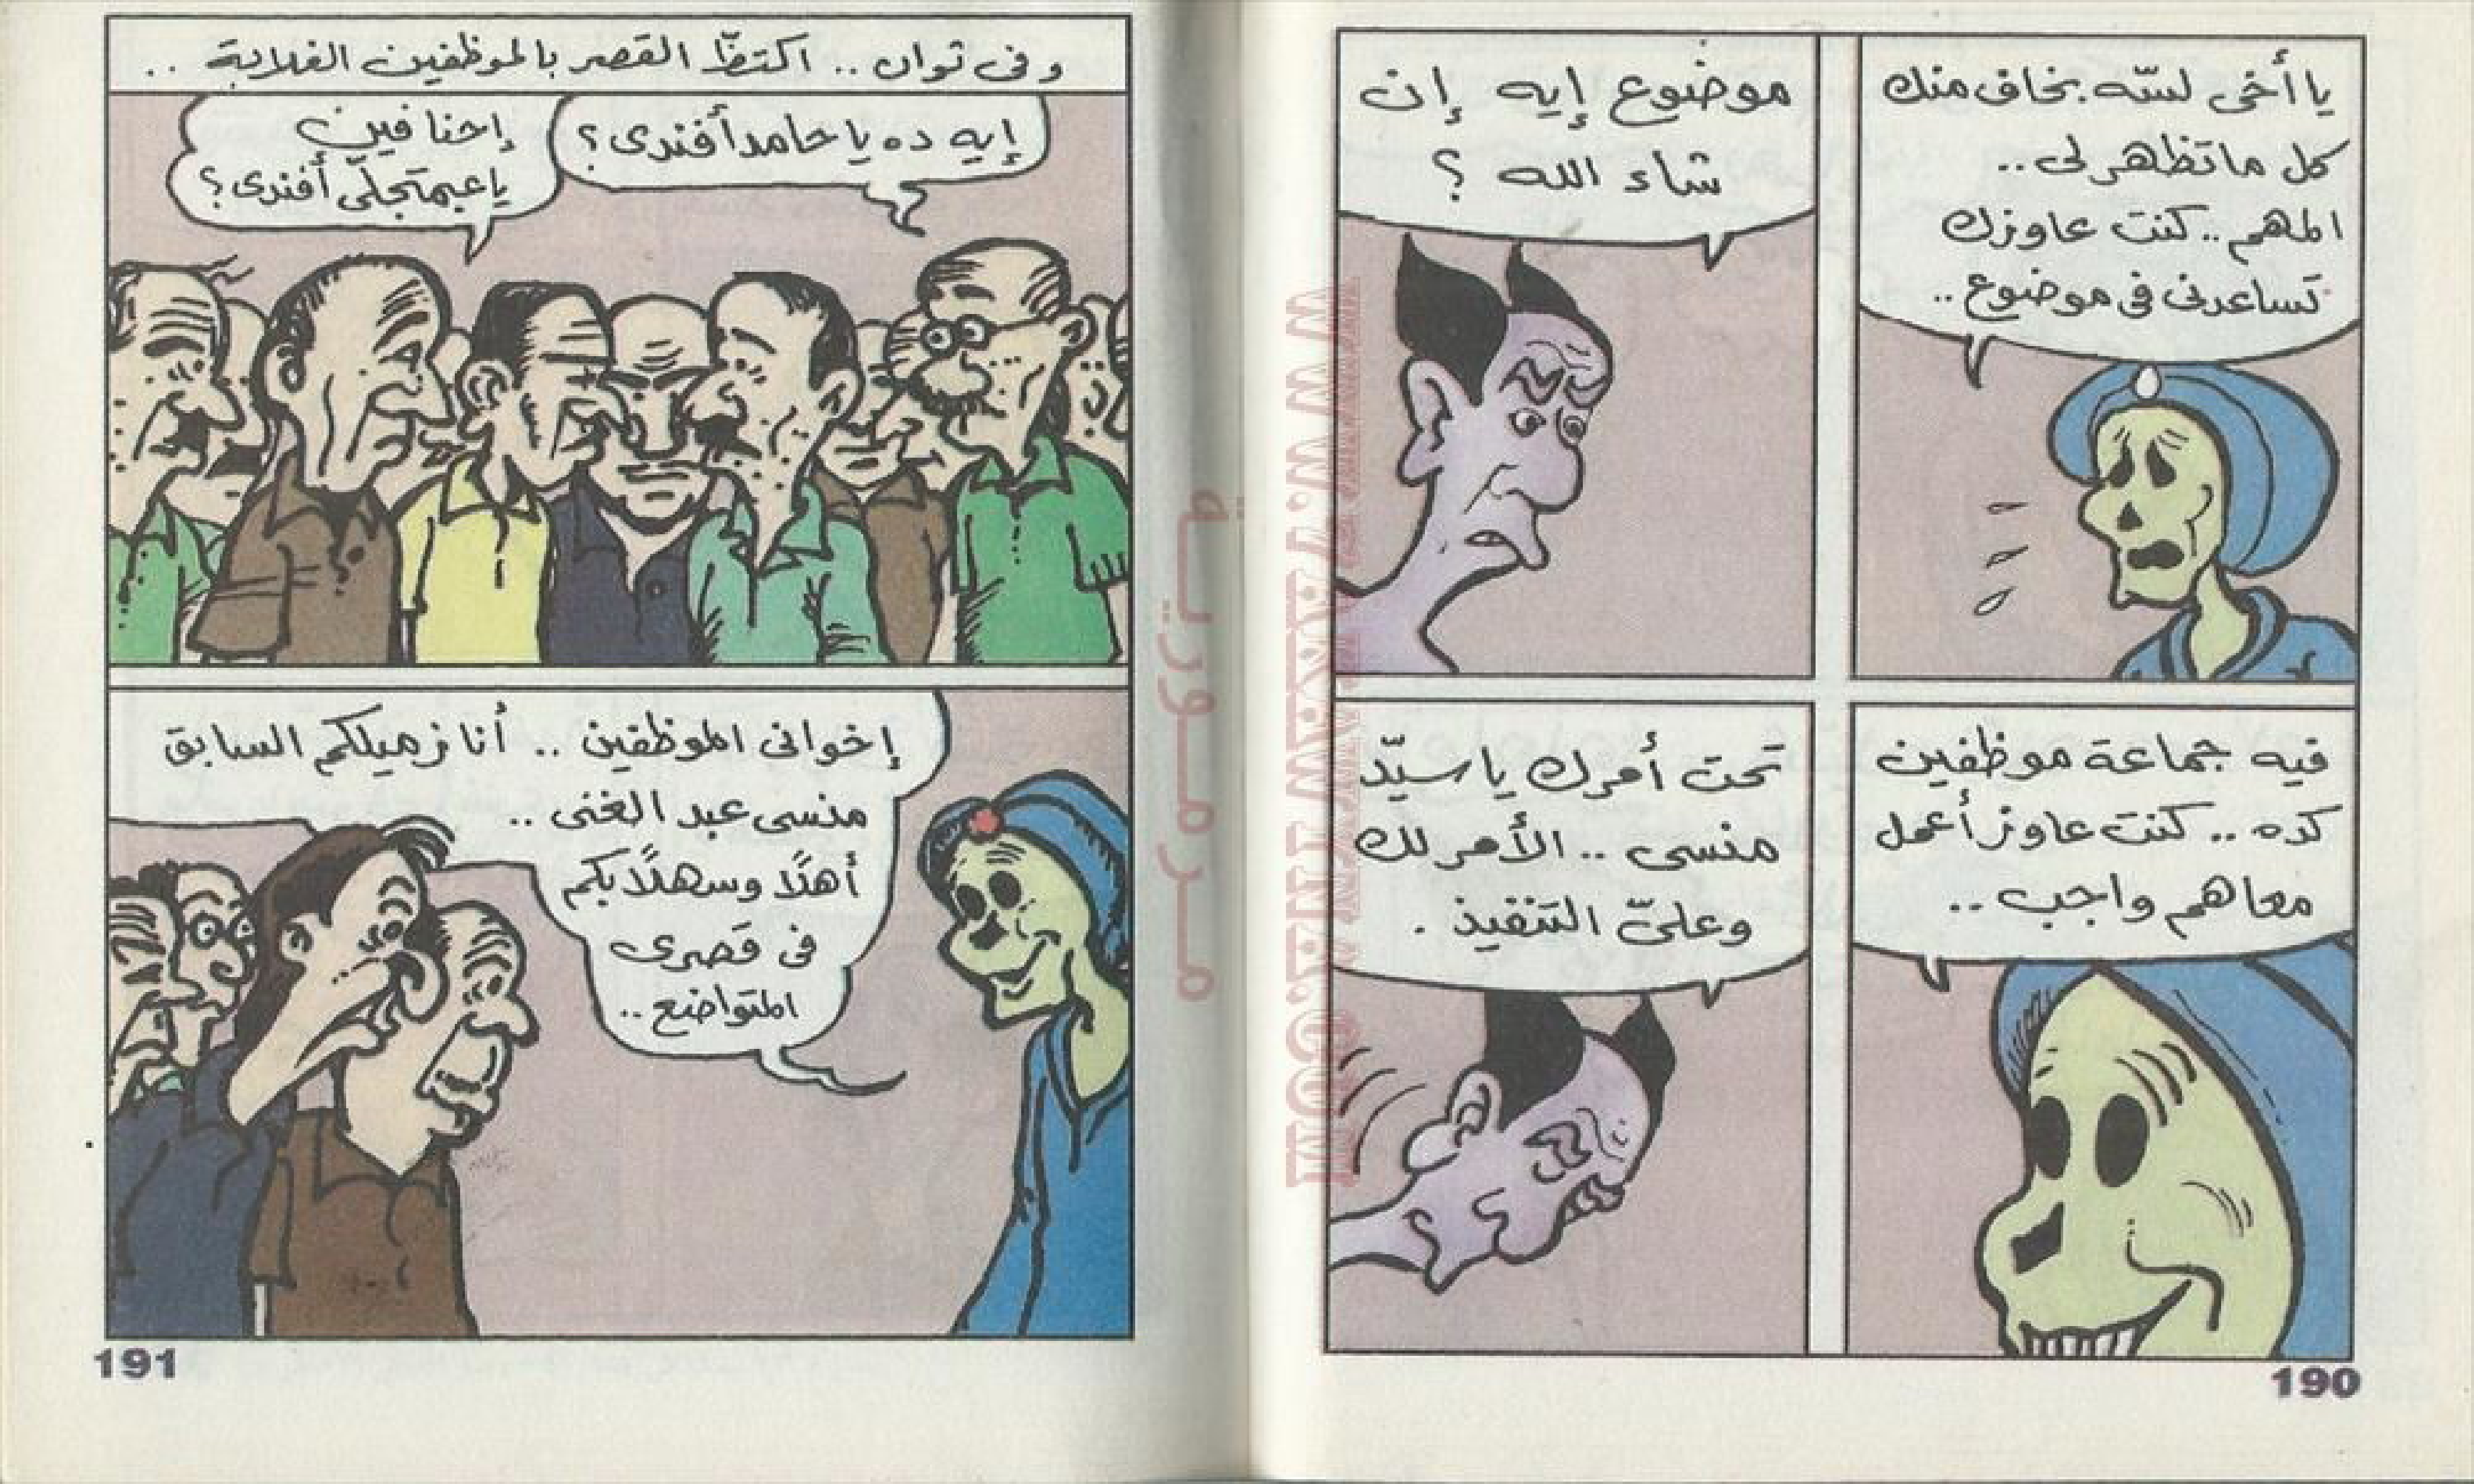 يا أخى لسّه بخاف منك
كل ما تظهر لى ..
المهم .. كنت عاوزك
تساعدنى فى موضوع ..
موضوع إيه إن
شاء الله ؟
فيه جماعة موظفين
كده .. كنت عاوز أعمل
معاهم واجب ..
تحت أمرك يا سيّد
منسى .. الأمر لك
وعلىّ التنفيذ .
190
وفى ثوان .. اكتظّ القصر بالموظفين الغلابة ..
إيه ده يا حامد أفندى ؟
إحنا فين
يا عبمتجلّى أفندى ؟
إخوانى الموظفين .. أنا زميلكم السابق
منسى عبد الغنى ..
أهلًا وسهلًا بكم
فى قصرى
المتواضع ..
191